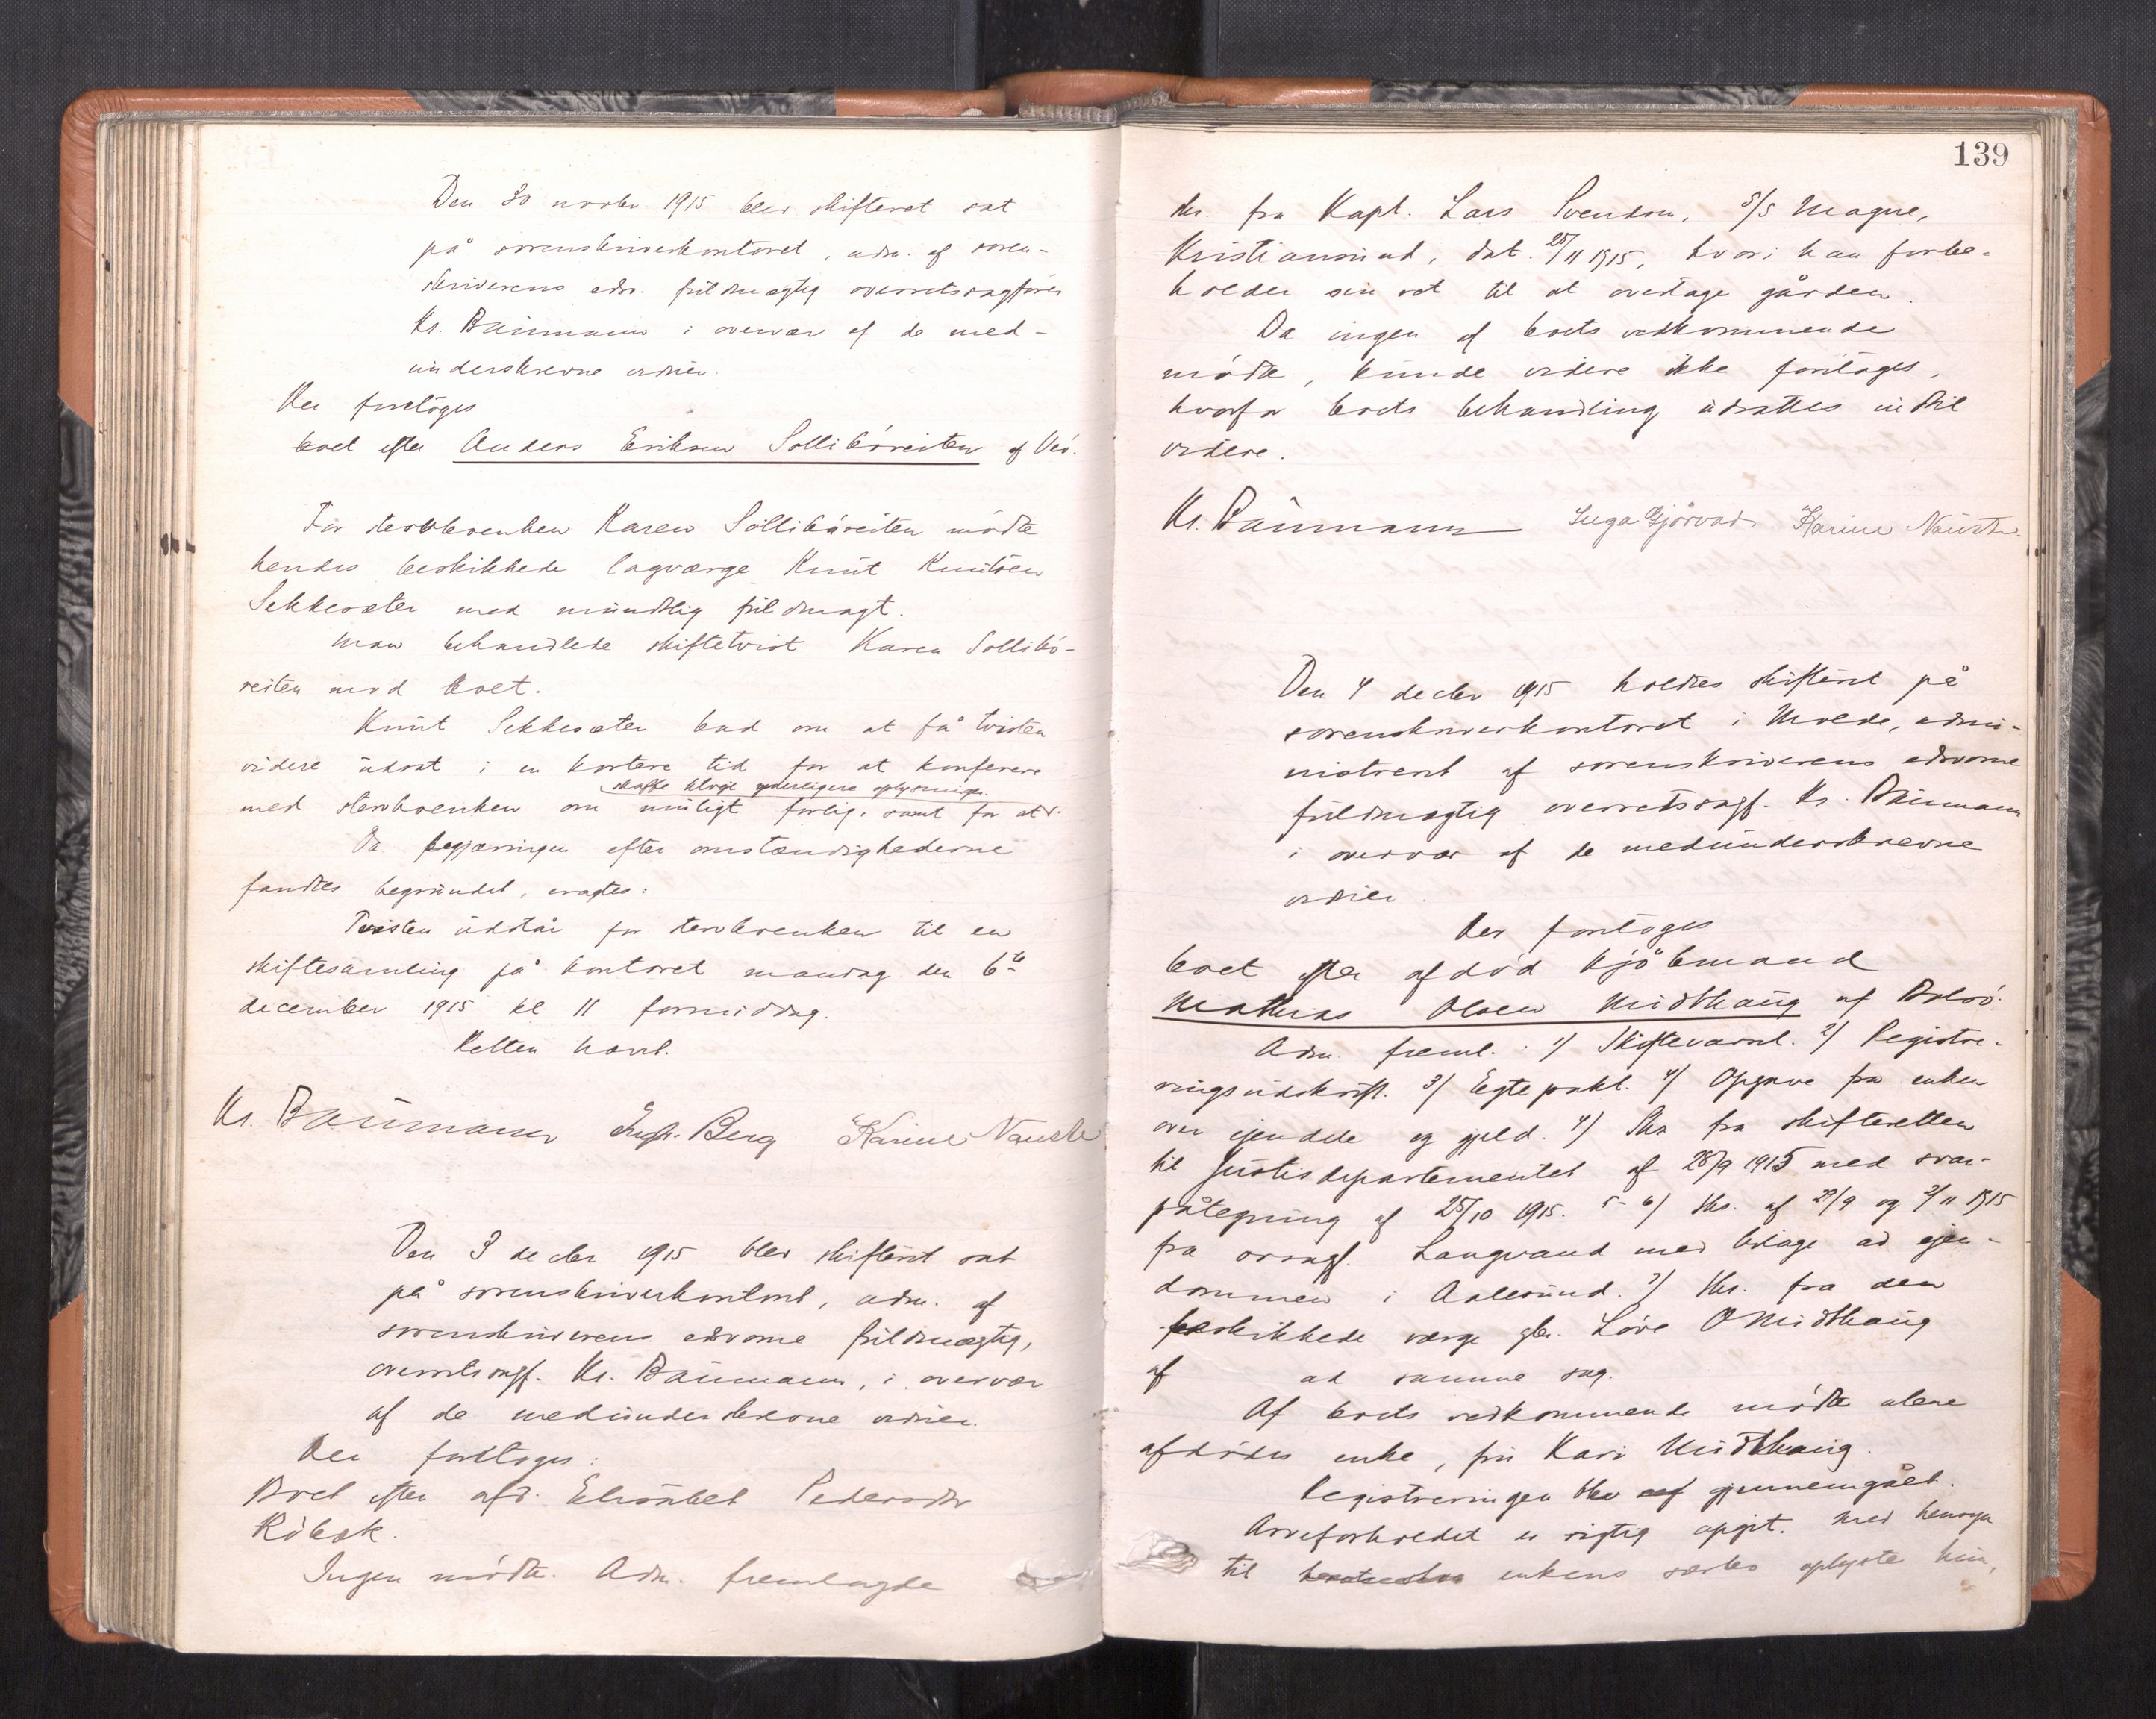 Den 30 novbr 1915 blev skifteret sat
på sorenskriverkontoret, adm. af soren-
skriverens edsv. fuldmægtig overretssagfører
Kr. Baumann i overvær af de med-
underskrevne vidner.
Der foretoges
boet efter Anders Eriksen Sollibøreiten af Veø.
For stervboenken Karen Sollibøreiten mødte
hendes beskikkede lagværge Knut Knutsen
Sekkesæter med mundtlig fuldmagt.
Man behandlede skiftetvist Karen Sollibø-
reiten mod boet.
Knut Sekkesæter bad om at få tvisten
videre udsat i en kortere tid for at konferere
skaffe tilveie yderligere oplysninger.
med stervboenken om muligt forlig, samt for at
Da begjæringen efter omstændighederne
fandtes begrundet, eragtes:
Tvisten udstår for stervboenken til en
skiftesamling på kontoret mandag den 6te
december 1915 kl 11 formiddag.
Retten hævet.
Kr. Baumann Ingr. Berg Karine Nauste
Den 3 decbr 1915 blev skifteret sat
på sorenskriverkontoret, adm. af
sorenskriverens edsvorne fuldmægtig,
overretssagf. Kr. Baumann, i overvær
af de medunderskrevne vidner.
Der foretoges:
Boet efter afd. Elisabet Pedersdtr
Røbæk.
Ingen mødte. Adm. fremlagde
139
skr. fra Kapt. Lars Svendsen, S/S Magne,
Kristiansund, dat. 25/11 1915, hvori han forbe-
holder sin ret til at overtage gården.
Da ingen af boets vedkommende
mødte, kunde videre ikke foretages,
hvorfor boets behandling udsattes indtil
videre.
Kr. Baumann Inga Gjørvad Karine Nauste.
Den 4 decbr 1915 holdtes skifteret på
sorenskriverkontoret i Molde, admi-
nistreret af sorenskriverens edsvorne
fuldmægtig overretssagf. Kr. Baumann
i overvær af de medunderskrevne
vidner.
Der foretoges
boet efter afdød kjøbmand
Mathias Olsen Midthaug af Bolsø.
Adm. freml.: 1) Skiftevarsl. 2) Registre-
ringsudskrift. 3) Egtepakt. 4) Opgave fra enken
over eiendele og gjeld. 4) Skr fra skifteretten
til Justisdepartementet af 28/9 1915 med svar-
påtegning af 25/10 1915. 5-6) Skr. af 29/9 og 2/11 1915
fra orsagf. Langvand med bilage ad eien-
dommen i Aalesund. 7) Skr. fra den
beskikkede værge gbr. Lars O Midthaug
af ad samme sag.
Af boets vedkommende mødte alene
afdødes enke, fru Kari Midthaug.
Registreringen blev gjennemgået.
Arveforholdet er rigtig opgit. Med hensyn
til enkens særbo oplyste hun,